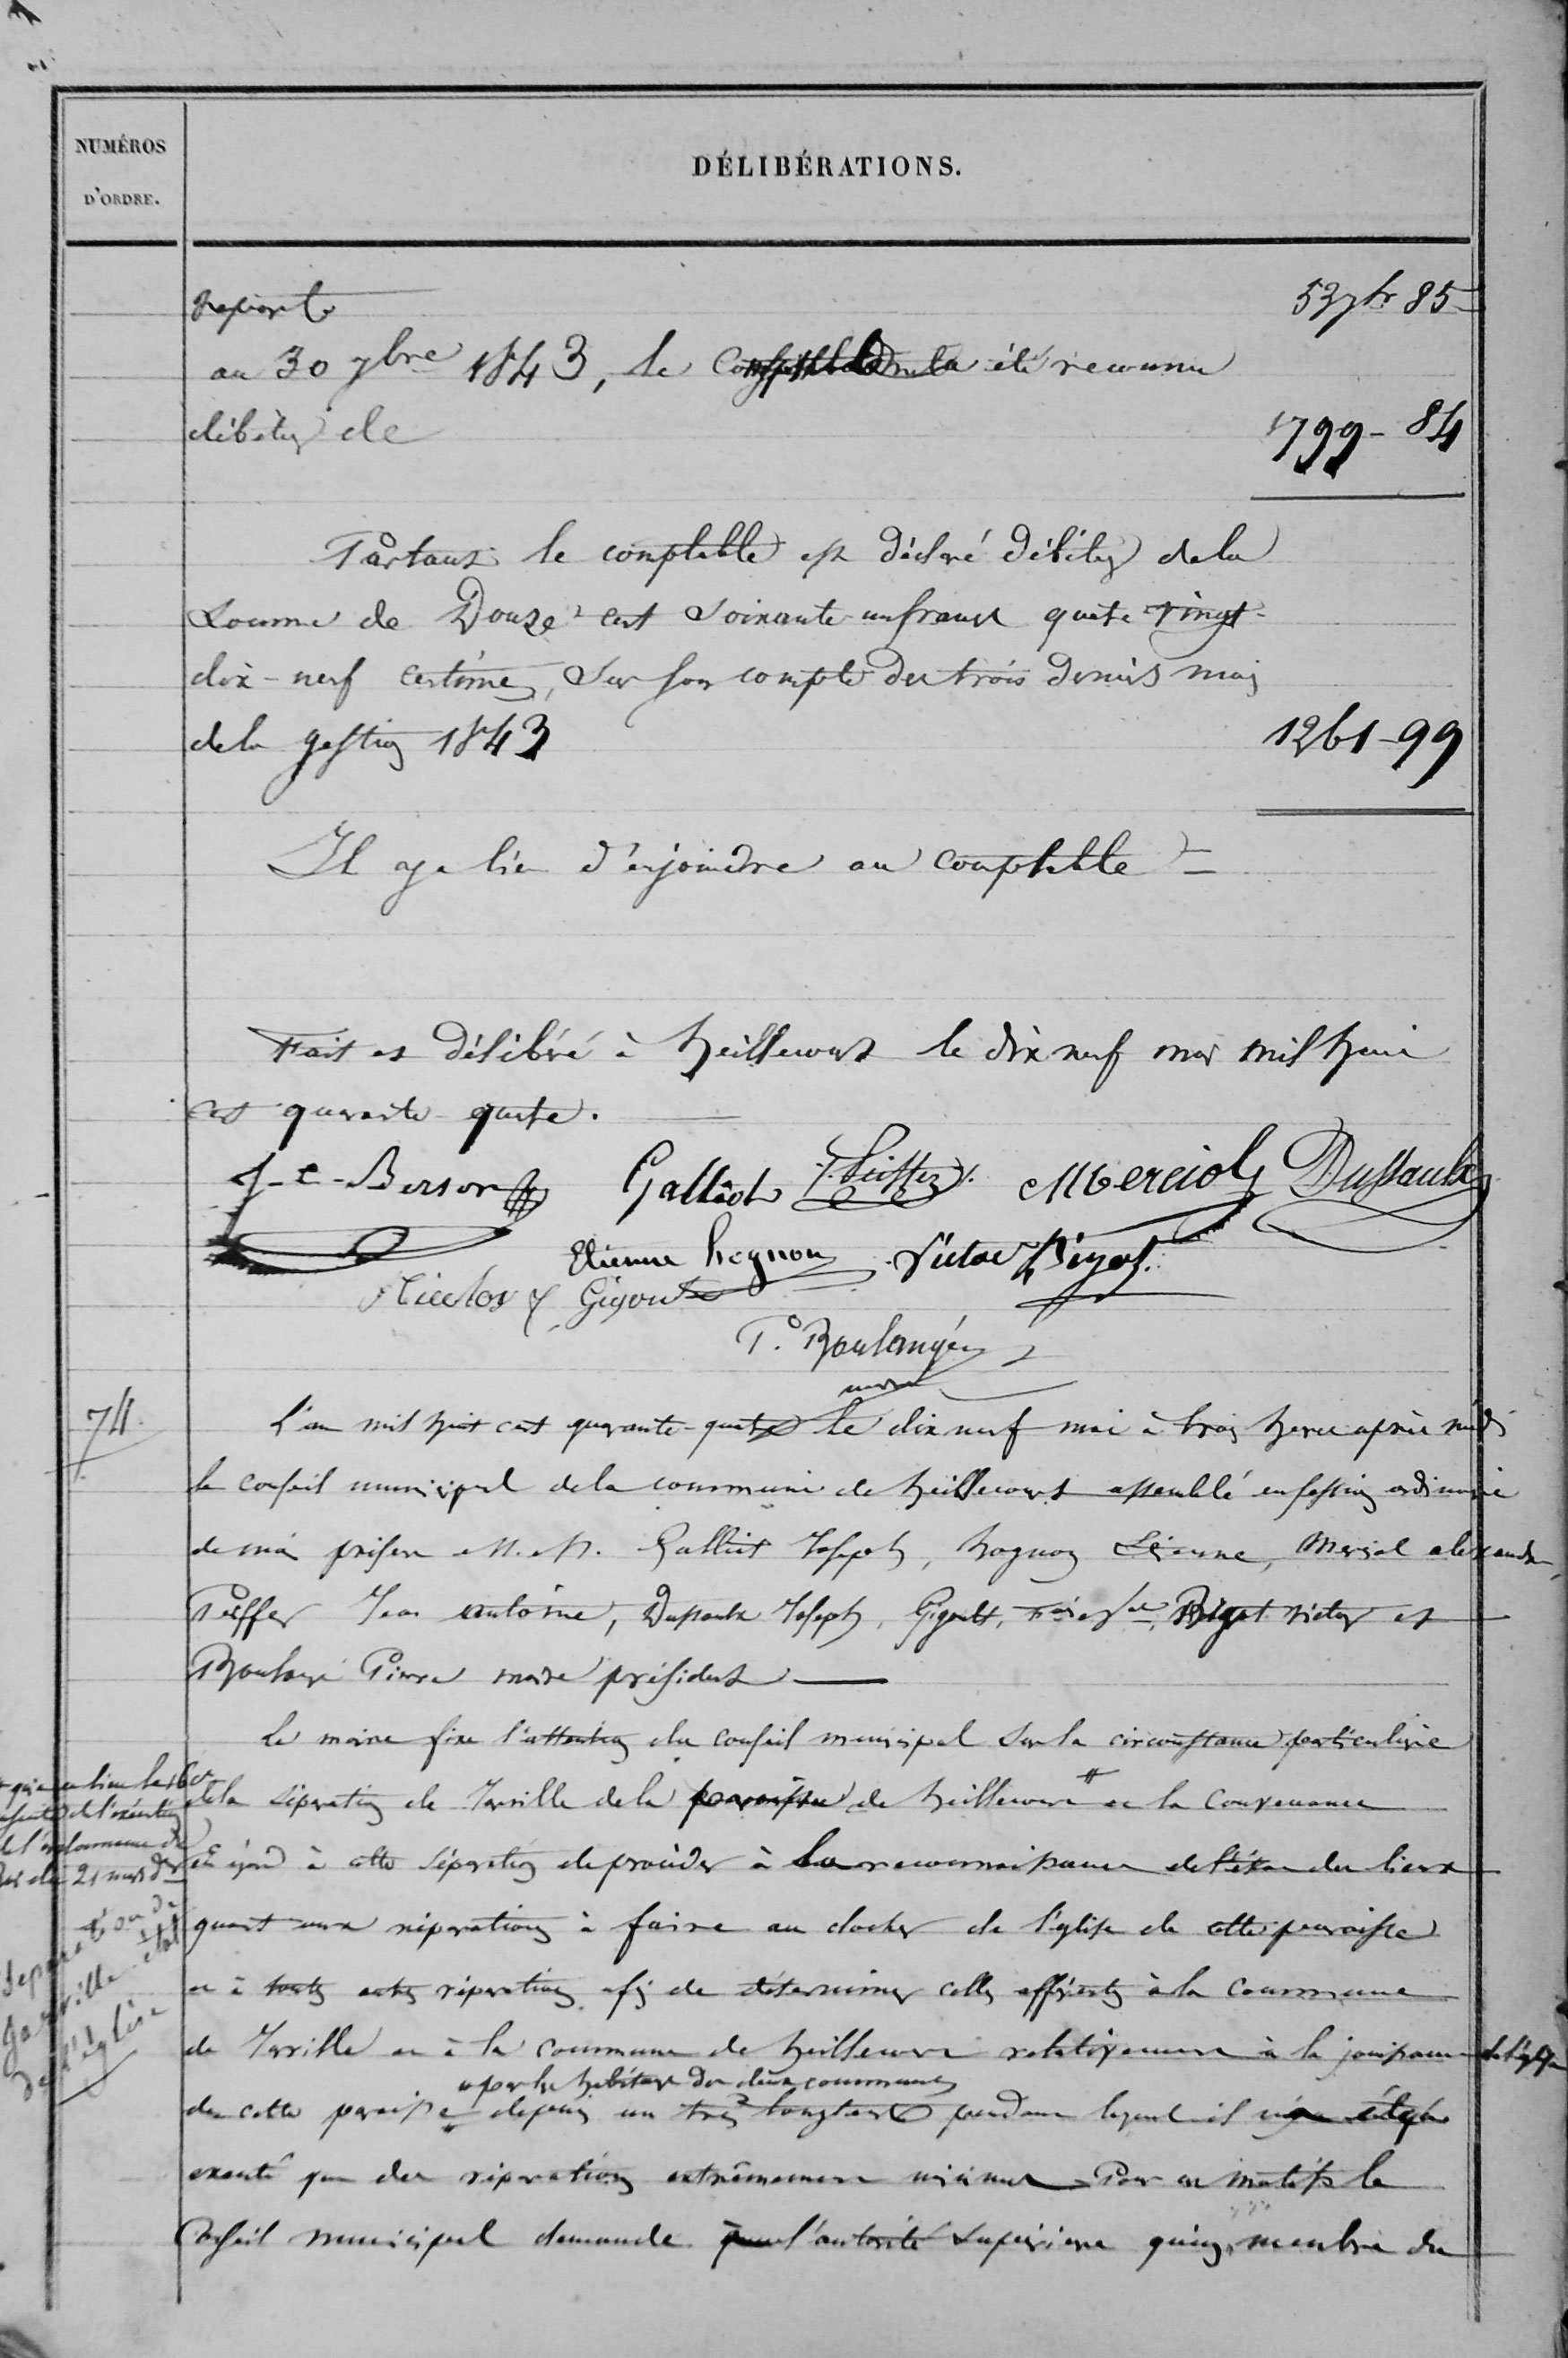 NUMÉROS
D'ORDRE.
DÉLIBÉRATIONS.
Report 537fr 85
au 30 7bre 1843, le Comptable a été reconnu
débiteur de 1799 - 84
Partant le comptable est déclaré débiteur de la
Somme de Douze cent Soixante-un francs quatre vingt-
dix-neuf centimes, Sur son compte des trois derniers mois
de la gestion 1843 1261-99
Il y a lieu d'enjoindre au comptable =
Fait et Délibéré à heillecourt le dix neuf mai mil huit
cent quarante quatre.
J-C-Berson Galliot Peiffer MMerciol Dussaulx
Etienne hognon Victor Bigot
Nicolos f Gigout
P. Boulangé
maire
74.
L'an mil huit cent quarante-quatre le dix neuf mai à trois heures après midi
le conseil municipal de la commune de heillecourt assemblé en session ordinaire
de mai présens M.M. Galliot Joseph, hognon Etienne, Merciol alexandre,
Peiffer Jean antoine, Dussaulx Joseph, Gigoult, Bigot Victor et
Boulangé Pierre maire président
Le maire fixe l'attention du conseil municipal Sur la circonstance particulière
de la séparation de Jarville de la paroisse de heillecourt # et la Convenance
Eu égard à cette Séparation de procéder à la reconnaissance de l'état des lieux
quant aux réparations à faire au clocher de l'église de cette paroisse
et à toutes autres réparations afin de déterminer celles afférentes à la Commune
de Jarville et à la commune de heillecourt relativement à la jouissance de l'église
de cette paroisse par les habitans des deux communes depuis un très longtems pendant lequel il n'a été
exécuté que des réparations extrêmement minimes. Pour ces motifs le
Conseil municipal demande à l'autorité Supérieure qu'un membre du
# qui a eu lieu
de l'exécution
de l'ordonnance du
Roi du 21 mars
Séparation de
Jarville état
de l'église